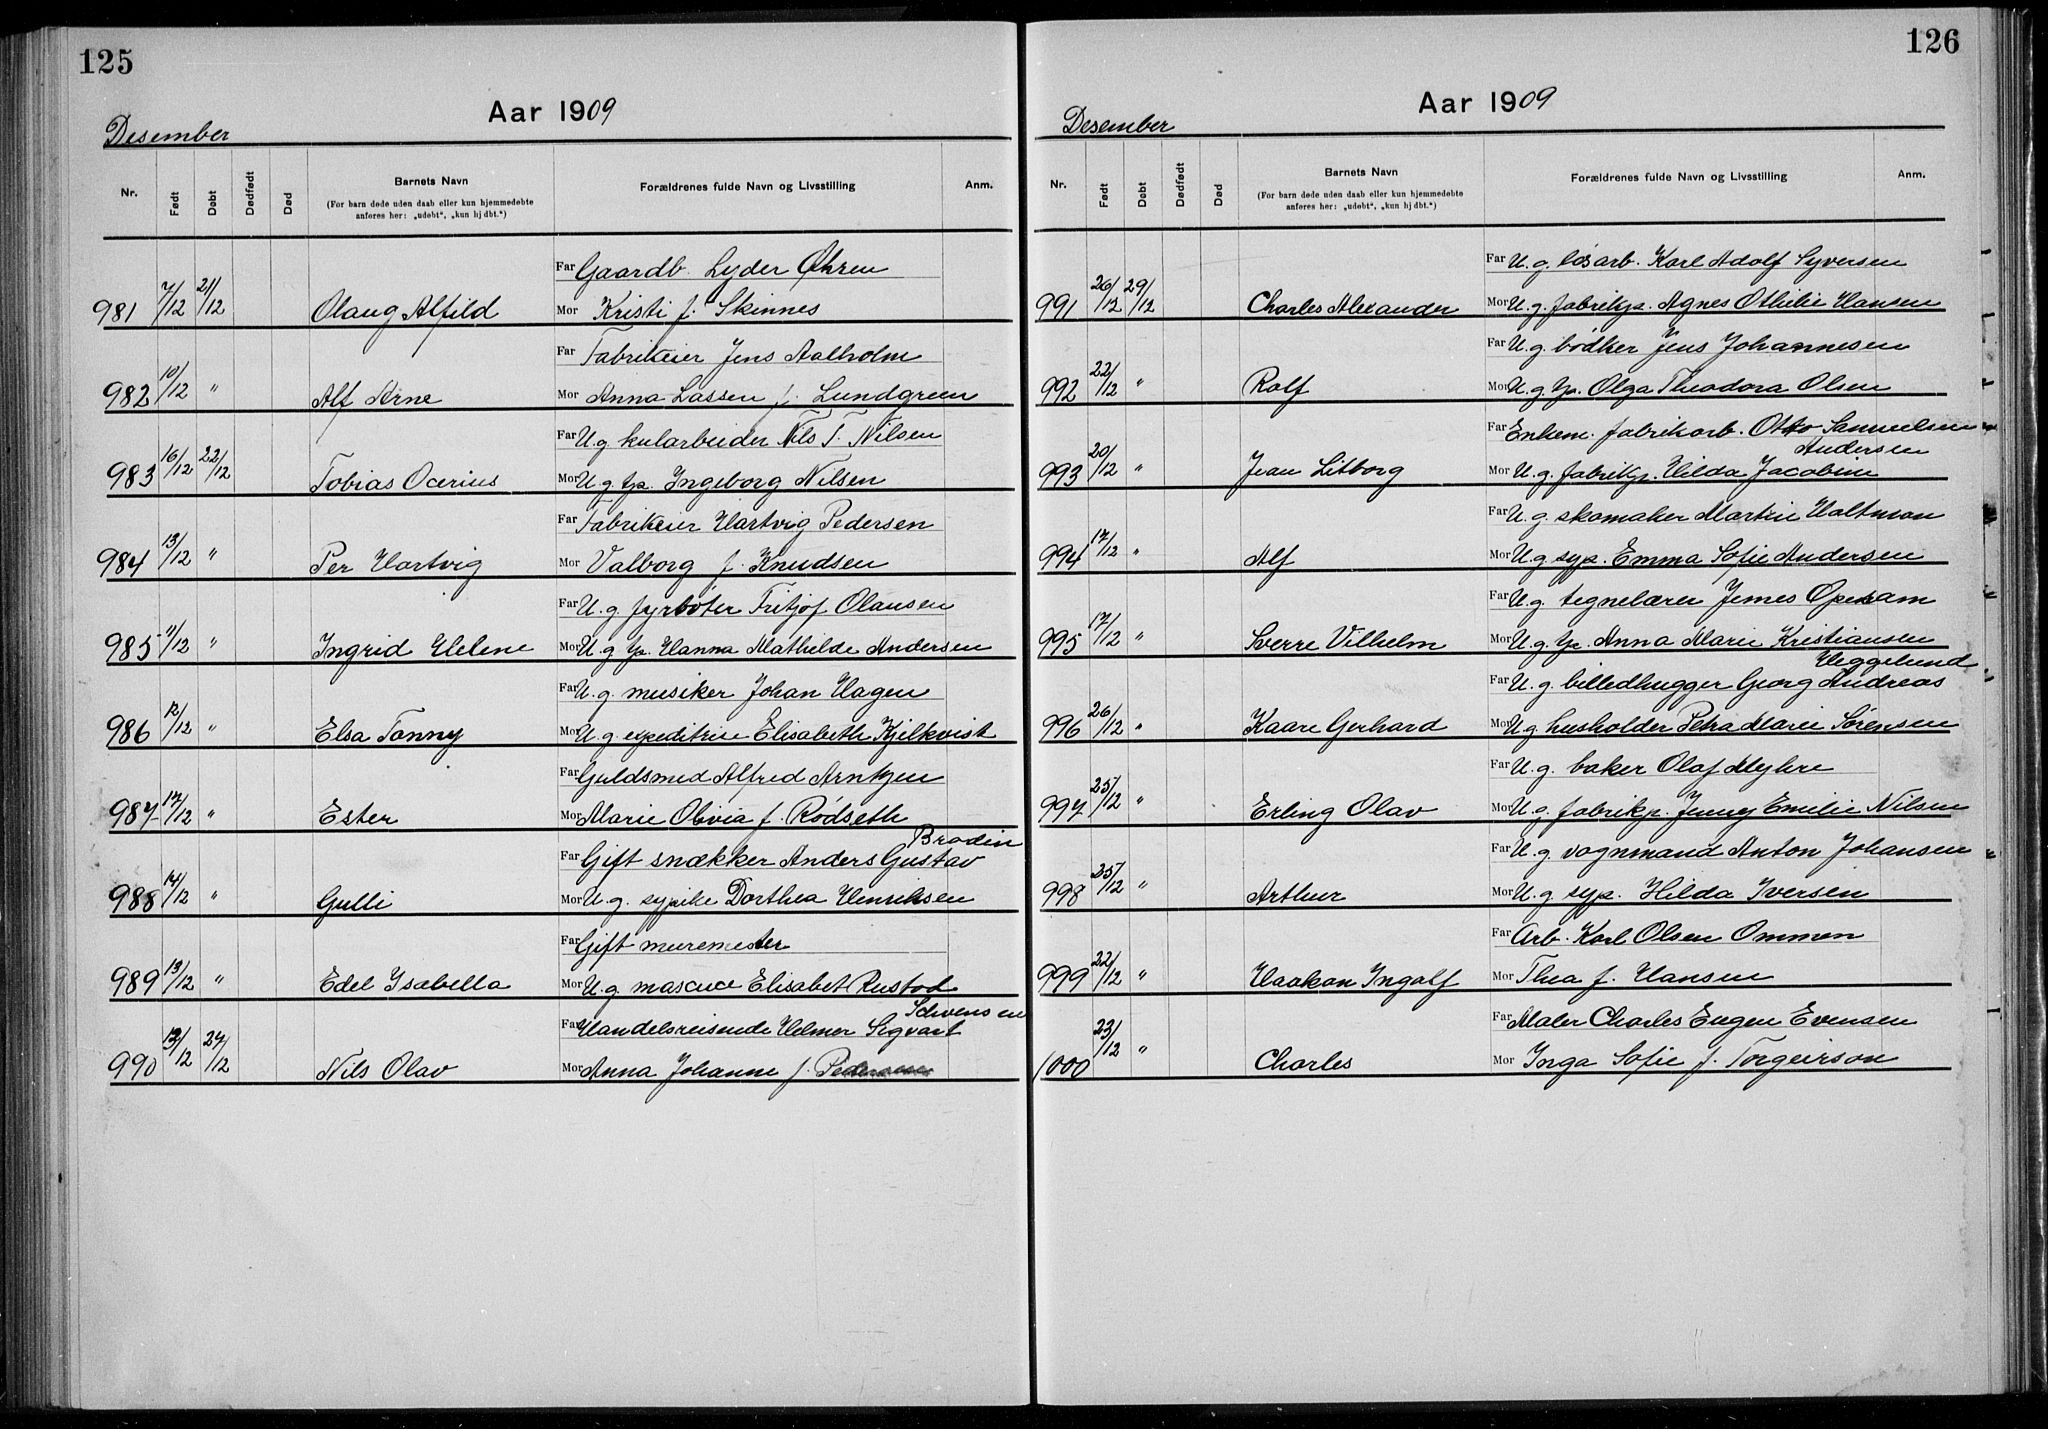 125
Aar 1909
Desember
Nr. Født Døbt Dødfødt Død Barnets Navn Forældrenes fulde Navn og Livsstilling Anm.
(For barn døde uden daab eller kun hjemmedøbte
anføres her: „udøbt“, „kun hj dbt.“)
Far Gaardb. Lyder Øhren
981 7/12 21/12 Olaug Alfild Mor Kristi f. Skinnes
Far Fabrikeier Jens Aalholm
982 10/12 " Alf Arne Mor Anna Lassen f. Lundgreen
Far U.g. kularbeider Nils T. Nilsen
983 16/12 22/12 Tobias Ocerius Mor U.g. tp. Ingeborg Nilsen
Far Fabrikeier Hartvig Pedersen
984 13/12 " Per Hartvig Mor Valborg f. Knudsen
Far U.g. fyrbøter Fritjof Olausen
985 11/12 " Ingrid Helene Mor U.g. tp. Hanna Mathilde Andersen
Far U.g. musiker Johan Hagen
986 12/12 " Elsa Tonny Mor U.g. expeditrise Elisabeth Kjelkvist
Far Guldsmed Alfred Arntzen
987 17/12 " Ester Mor Marie Olivia f. Rødseth
Brodin
Far Gift snækker Anders Gustav
988 14/12 " Gulli Mor U.g. sypike Dorthea Henriksen
Far Gift muremester
989 13/12 " Edel Ysabella Mor U.g. Elisabet Rustad
Far Handelsreisende Helmer Sigvart
990 13/12 27/12 Nils Olav Mor Anna Johanne f. Pedersen
126
Aar 1909
Desember
Nr. Født Døbt Dødfødt Død Barnets Navn Forældrenes fulde Navn og Livsstilling Anm.
(For barn døde uden daab eller kun hjemmedøbte
anføres her: „udøbt“, „kun hj dbt.“)
Far U.g. løsarb. Karl Adolf Syversen
991 26/12 29/12 Charles Alexander Mor U.g. fabrikp. Agnes Othilie Hansen
Far U.g. bødker Jens Johannesen
992 22/12 " Rolf Mor U.g. tp. Olga Theodora Olsen
Far Enkem. fabrikarb. Otto Samuelsen
Andersen
993 20/12 " Jean Litborg Mor U.g. fabrikp. Hilda Jacobine
Far U.g. skomaker Martin Holtman
994 17/12 " Alf Mor U.g. syp. Emma Sofie Andersen
Far U.g. tegnelærer Jemes
995 17/12 " Sverre Vilhelm Mor U.g. tp. Anna Marie Kristiansen
Heggelund
Far U.g. billedhugger Georg Andreas
996 26/12 " Kaare Gerhard Mor U.g. husholder Petra Marie Sørensen
Far U.g. baker Olaf Myhre
997 25/12 " Erling Olav Mor U.g. fabrikp. Jenny Emilie Nilsen
Far U.g. vognmand Anton Johansen
998 25/12 " Arthur Mor U.g. syp. Hilda Iversen
Far Arb. Karl Olsen Ommen
999 22/12 " Haakon Ingolf Mor Thea f. Hansen
Far Maler Charles Eugen Evensen
1000 23/12 " Charles Mor Inga Sofie f. Torgeirson